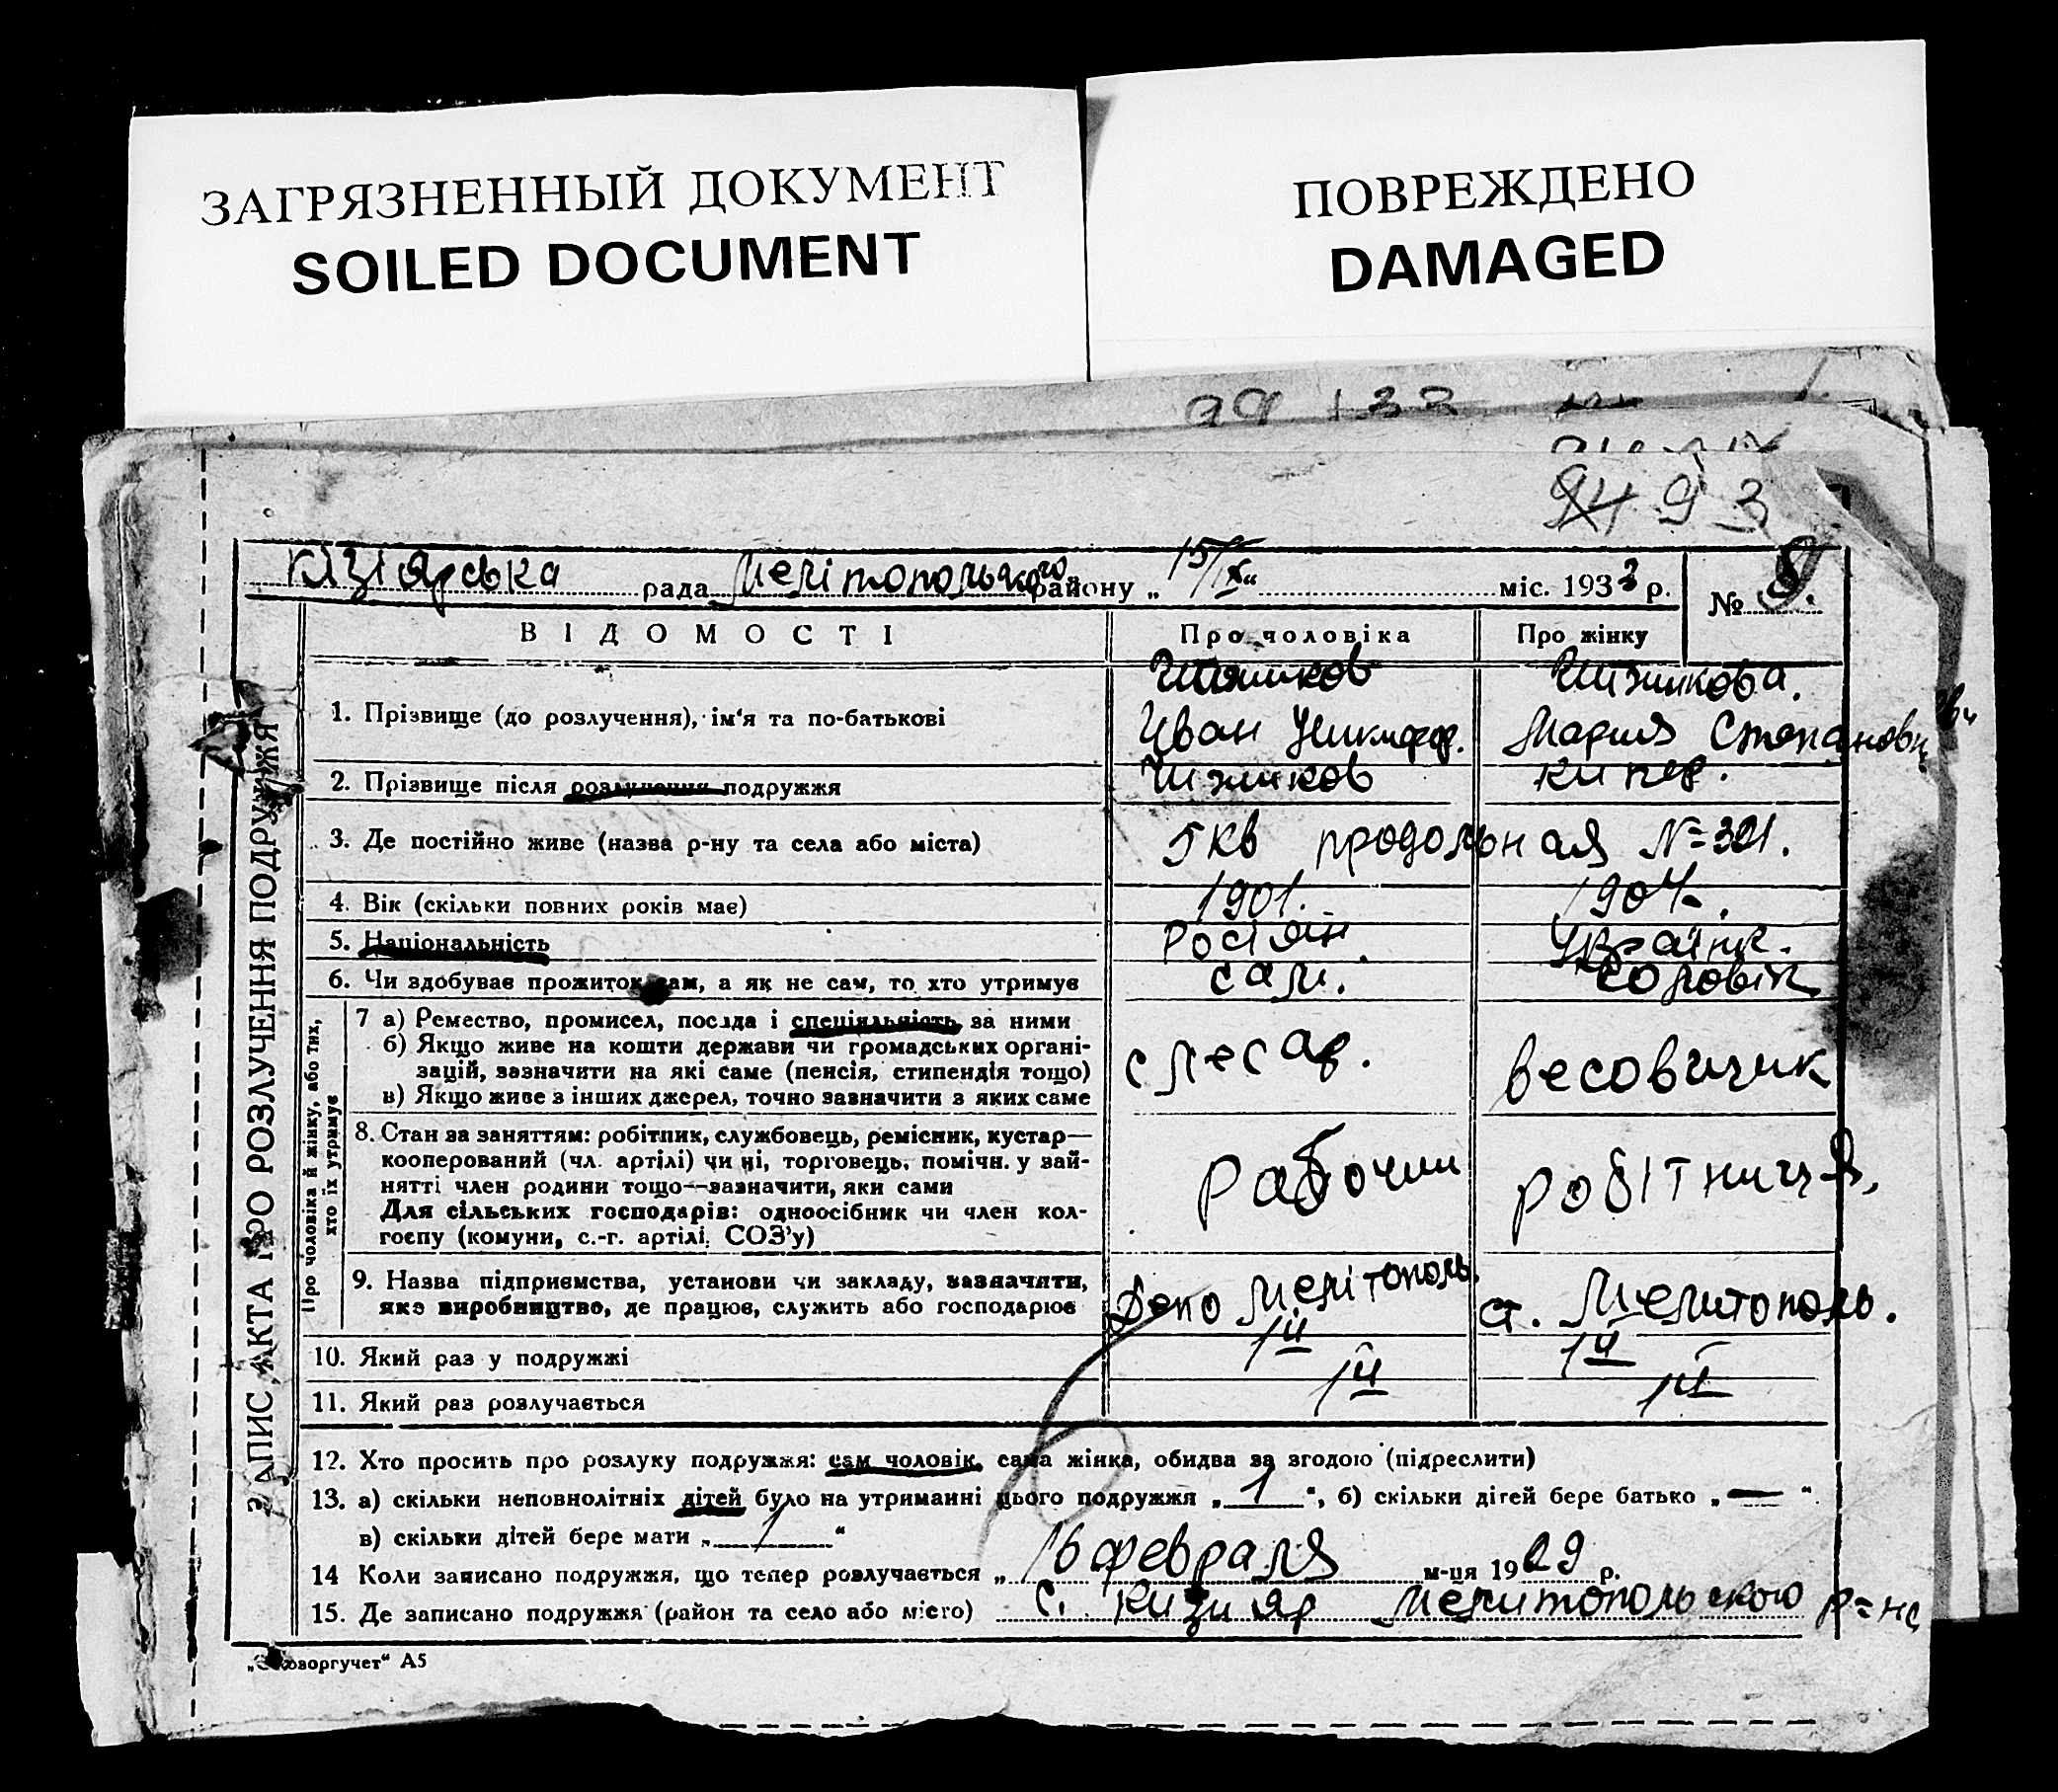 ЗАГРЯЗНЕННЫЙ ДОКУМЕНТ
SOILED DOCUMENT
ПОВРЕЖДЕНО
DAMAGED
94 9 3
Кізіярська рада Мелітопольського району „ 15/ІХ “ міс. 1933 р. № 8.
ВІДОМОСТІ Про чоловіка Про жінку
ЗАПИС АКТА ПРО РОЗЛУЧЕННЯ ПОДРУЖЖЯ
Чижиков Чижикова.
1. Прізвище (до розлучення), ім‘я та по-батькові Иван Никифор. Мария Степановн
2. Прізвище після розлучення подружжя Чижиков Кипер.
3. Де постійно живе (назва р-ну та села або міста) 5 кв продольная N=321.
4. Вік (скільки повних років має) 1901. 1904.
5. Національність Росіян. Українк.
6. Чи здобуває прожиток сам, а як не сам, то хто утримує сам. чоловік
Про чоловіка й жінку, або тих, хто їх утримує
7 а) Ремество, промисел, посада і спеціяльність за ними
б) Якщо живе на кошти держави чи громадських органі-
зацій, зазначити на які саме (пенсія, стипендія тощо) слесар. весовщик
в) Якщо живе з інших джерел, точно зазначити з яких саме
8. Стан за заняттям: робітник, службовець, ремісник, кустар—
кооперований (чл. артілі) чи ні, торговець, помічн. у зай-
нятті член родини тощо—зазначити, яки сами рабочий робітниця,
Для сільських господарів: одноосібник чи член кол-
госпу (комуни, с.-г. артілі, СОЗ’у)
9. Назва підприємства, установи чи закладу, зазначити,
яке виробництво, де працює, служить або господарює Депо Мелітополь. ст. Мелитополь.
10. Який раз у подружжі 1й 1й
11. Який раз розлучається 1й 1й
12. Хто просить про розлуку подружжя: сам чоловік, сама жінка, обидва за згодою (підреслити)
13. а) скільки неповнолітніх дітей було на утриманні цього подружжя „ 1 “, б) скільки дітей бере батько „ — “.
в) скільки дітей бере мати „ 1 “
14 Коли записано подружжя, що тепер розлучається „ 16 февраля м-ця 1929 р.
15. Де записано подружжя (район та село або місто) с. Кизияр Мелитопольского р=на